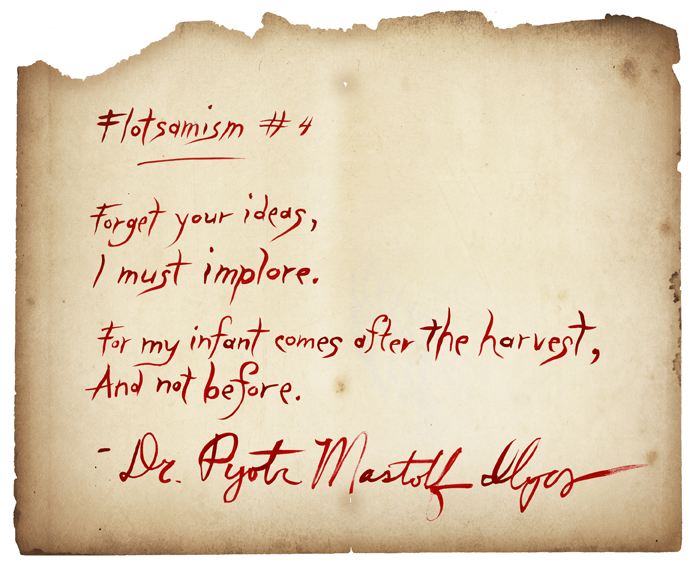 Flotsamism #4
Forget your ideas,
I must implore.
For my infant comes after the harvest,
And not before.
- Dr. Pyotr Mastolf